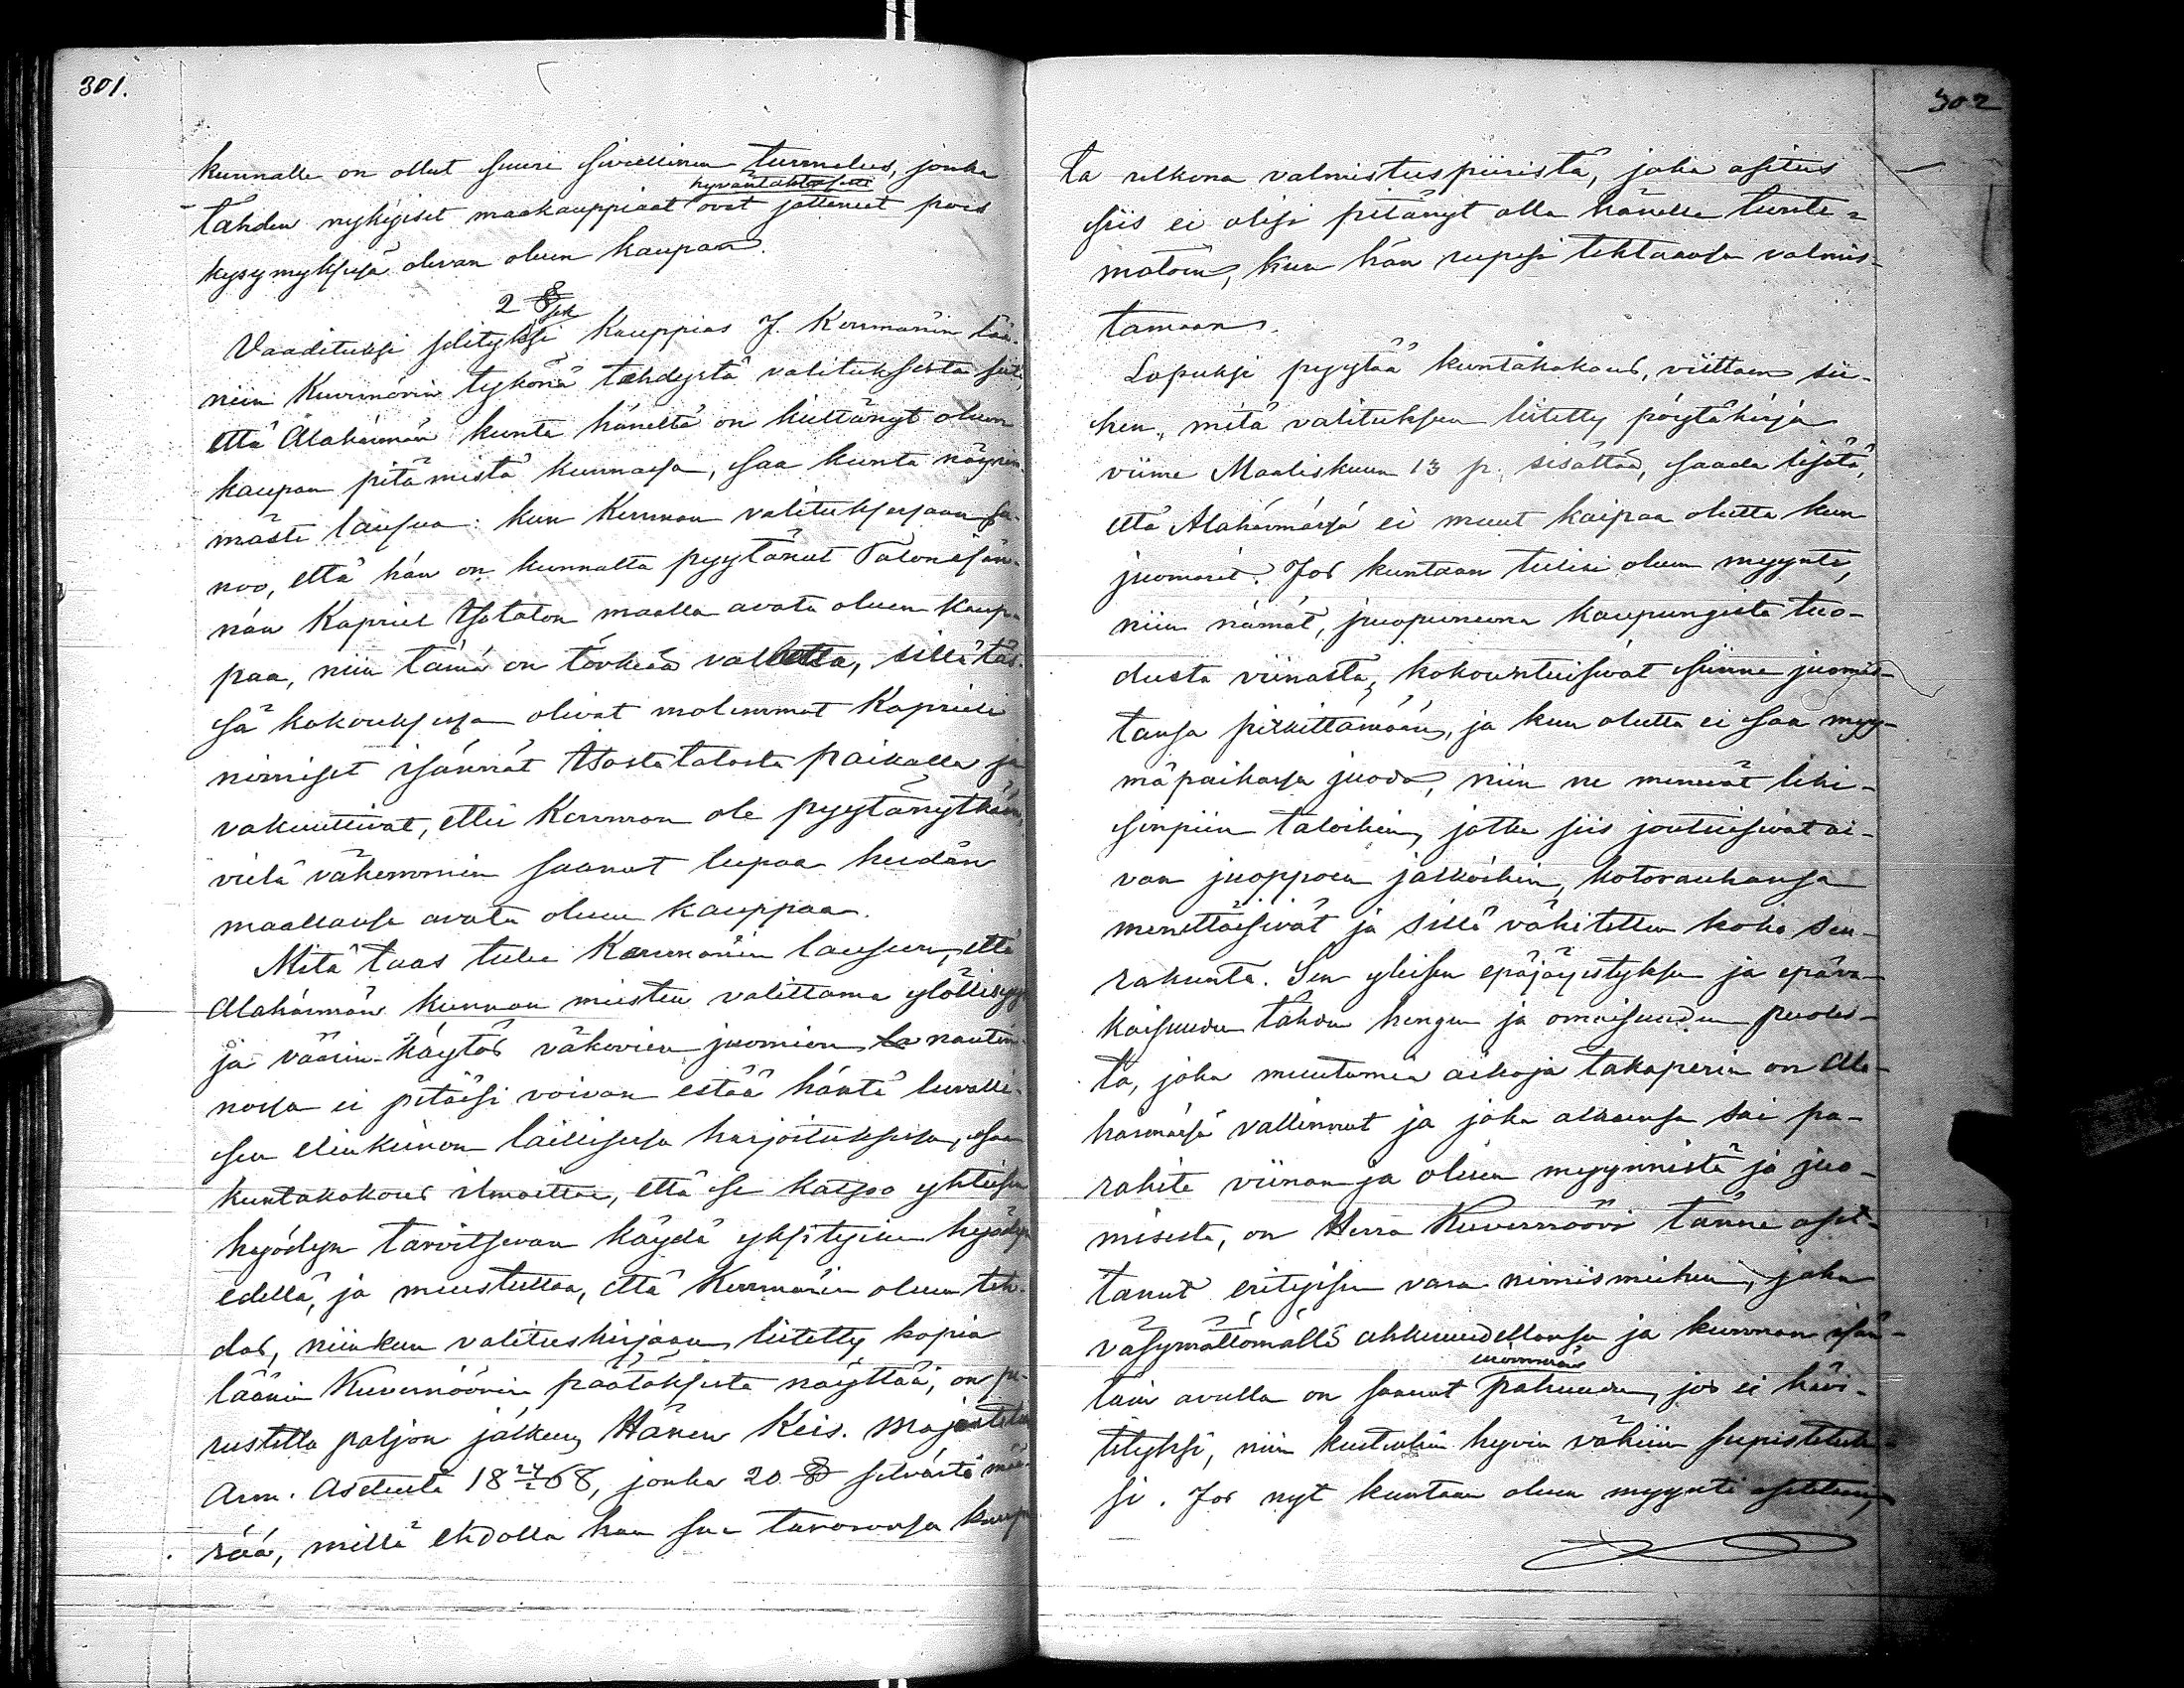 301.
kunnalle on ollut suuri siveellinen turmelus, jonka
hyväntahtosesti
tähden nykyiset maakauppiaat ovat jättäneet pois
kysymyksesä olevan oluen kaupan.
2 §
Vaadituksi selitykseksi Kauppias J. Kerrmanin lää-
niin Kuvernörin tykönä tehdystä valituksesta siitä,
että Alahärmän kunta häneltä on kieltänyt oluen
kaupan pitämistä kunnassa, saa kunta nöyrim-
mästi lausua: kun Kerrman valituksessaan sa-
noo, että hän on kunnalta pyytänut Talonisän-
nän Kapriel Isotalon maalla avata oluen kaup-
paa, niin tämä on törkeää valhetta, sillä täs-
sä kokouksessa olivat molemmat Kapriel
nimiset isännät Isostatalosta paikalla ja
vakuuttivat, ettei Kerrman ole pyytänytkään,
vielä vähemmin saanut lupaa heidän
maallansa avata oluen kauppaa.
Mitä taas tulee Kerrmanin lauseen, että
Alahärmän kunnan miesten valittama ylöllisyys
ja väärin-käytös väkevien juomien nautin-
nossa ei pitäisi voivan estää häntä luvalli-
sen elinkeinon laillisessa harjoituksessa, saa
kuntakokous ilmoittaa, että se katsoo yhteisen
hyödyn tarvitsevan käydä yksityisen hyödyn
edellä, ja muistuttaa, että Kerrmanin oluen teh-
das, niinkuin valituskirjaan liitetty kopia
läänin Kuvernöörin päätöksestä näyttää, on pe-
rustettu paljon jälkeen Hänen Keis. Majesteetin
Arm. Asetusta 18 24/2 68, jonka 20 § selvästi mää-
rää, millä ehdolla hän saa tavaraansa kaup-
302
ta ulkona valmistuspiiristä, joka asetus
siis ei olisi pitänyt olla hänelle tunte-
matoin, kun hän rupesi tehtaansa valmis-
tamaan.
Lopuksi pyytää kuntakokous, viittaen sii-
hen, mitä valituksen liitetty pöytäkirja
viime Maaliskuun 13 p. sisältää, saada lisätä,
että Alahärmässä ei muut kaipaa olutta kun
juomarit. Jos kuntaan tulisi oluen myynti,
niin nämät, juopuneena kaupungista tuo-
dusta viinasta, kokountuisivat siinne juomis-
tansa pitkittämään, ja kun olutta ei saa myy-
mäpaikassa juoda, niin ne menevät liki-
simpiin taloihin, jotka siis joutuisivat ai-
van juoppoin jalkoihin, kotorauhansa
menettäisivät ja sillä vähitellen koko seu-
rakunta. Sen yleisen epäjärjestyksen ja epäva-
kaisuuden tähden hengen ja omaisuuden puoles-
ta, joka muutamia aikoja takaperin on Ala-
härmässä vallinnut ja joka alkunsa sai pa-
rahite viinan ja oluen myynnistä ja juo-
misesta, on Herra Kuvernööri tänne aset-
tanut erityisen vara nimismiehen, joka
väsymättömällä ahkeruudellansa ja kunnan isän-
täin avulla on saanut pahuuden, jos ei hävi-
tetyksi, niin kuitenkin hyvin vähiin supistetuk-
si. Jos nyt kuntaan oluen myynti asetetaan,